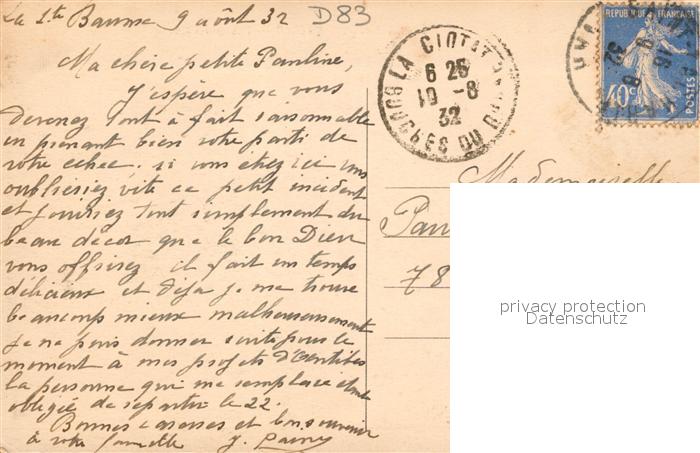 La Ste Baume 9 août 32
D83
Ma chère petite Pauline,
J'espère que vous
devenez tout à fait raisonnable
en prenant bien votre parti de
votre échec. si vous étiez ici vous
oublieriez vite ce petit incident
et jouiriez tout simplement du
beau décor que le bon Dieu
vous offrirez il fait un temps
délicieux et déja je me trouve
beaucoup mieux malheureusement
je ne puis donner suite pour le
moment à mes projets d'Antibes
la personne qui me remplace étant
obligée de repartir le 22.
Bonnes caresses et bon souvenir
à votre famille J.
LA CIOTAT
6 25
10 - 8
32
BOUCHES DU RHONE
REPUBLIQUE FRANÇAISE
40c
POSTES
Mademoiselle
Pau
78
privacy protection
Datenschutz